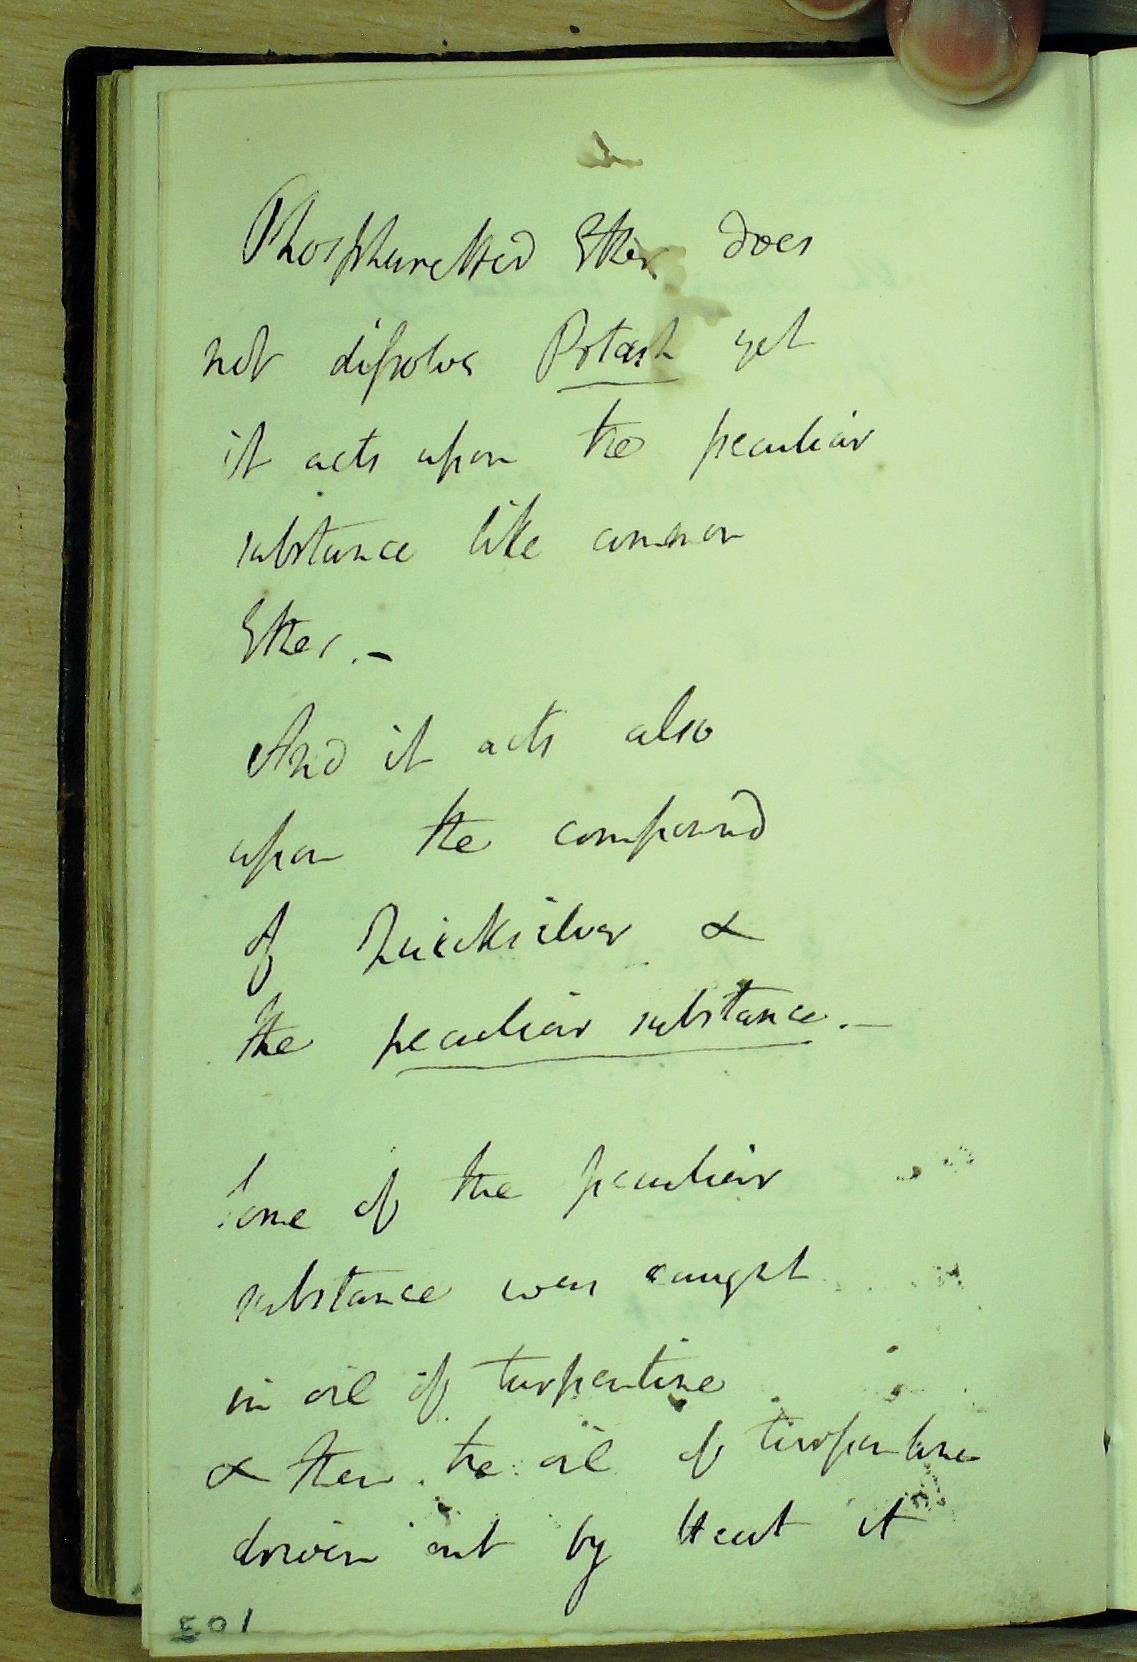 Phosphuretted Ether does
not dissolve Potash yet
it acts upon the peculiar
substance like common
Ether. –
And it acts also
upon the compound
of Quicksilver &
the peculiar substance. –
Some of the peculiar
substance was caught
in oil of turpentine
& then the oil of turpentine
driven out by Heat it
103